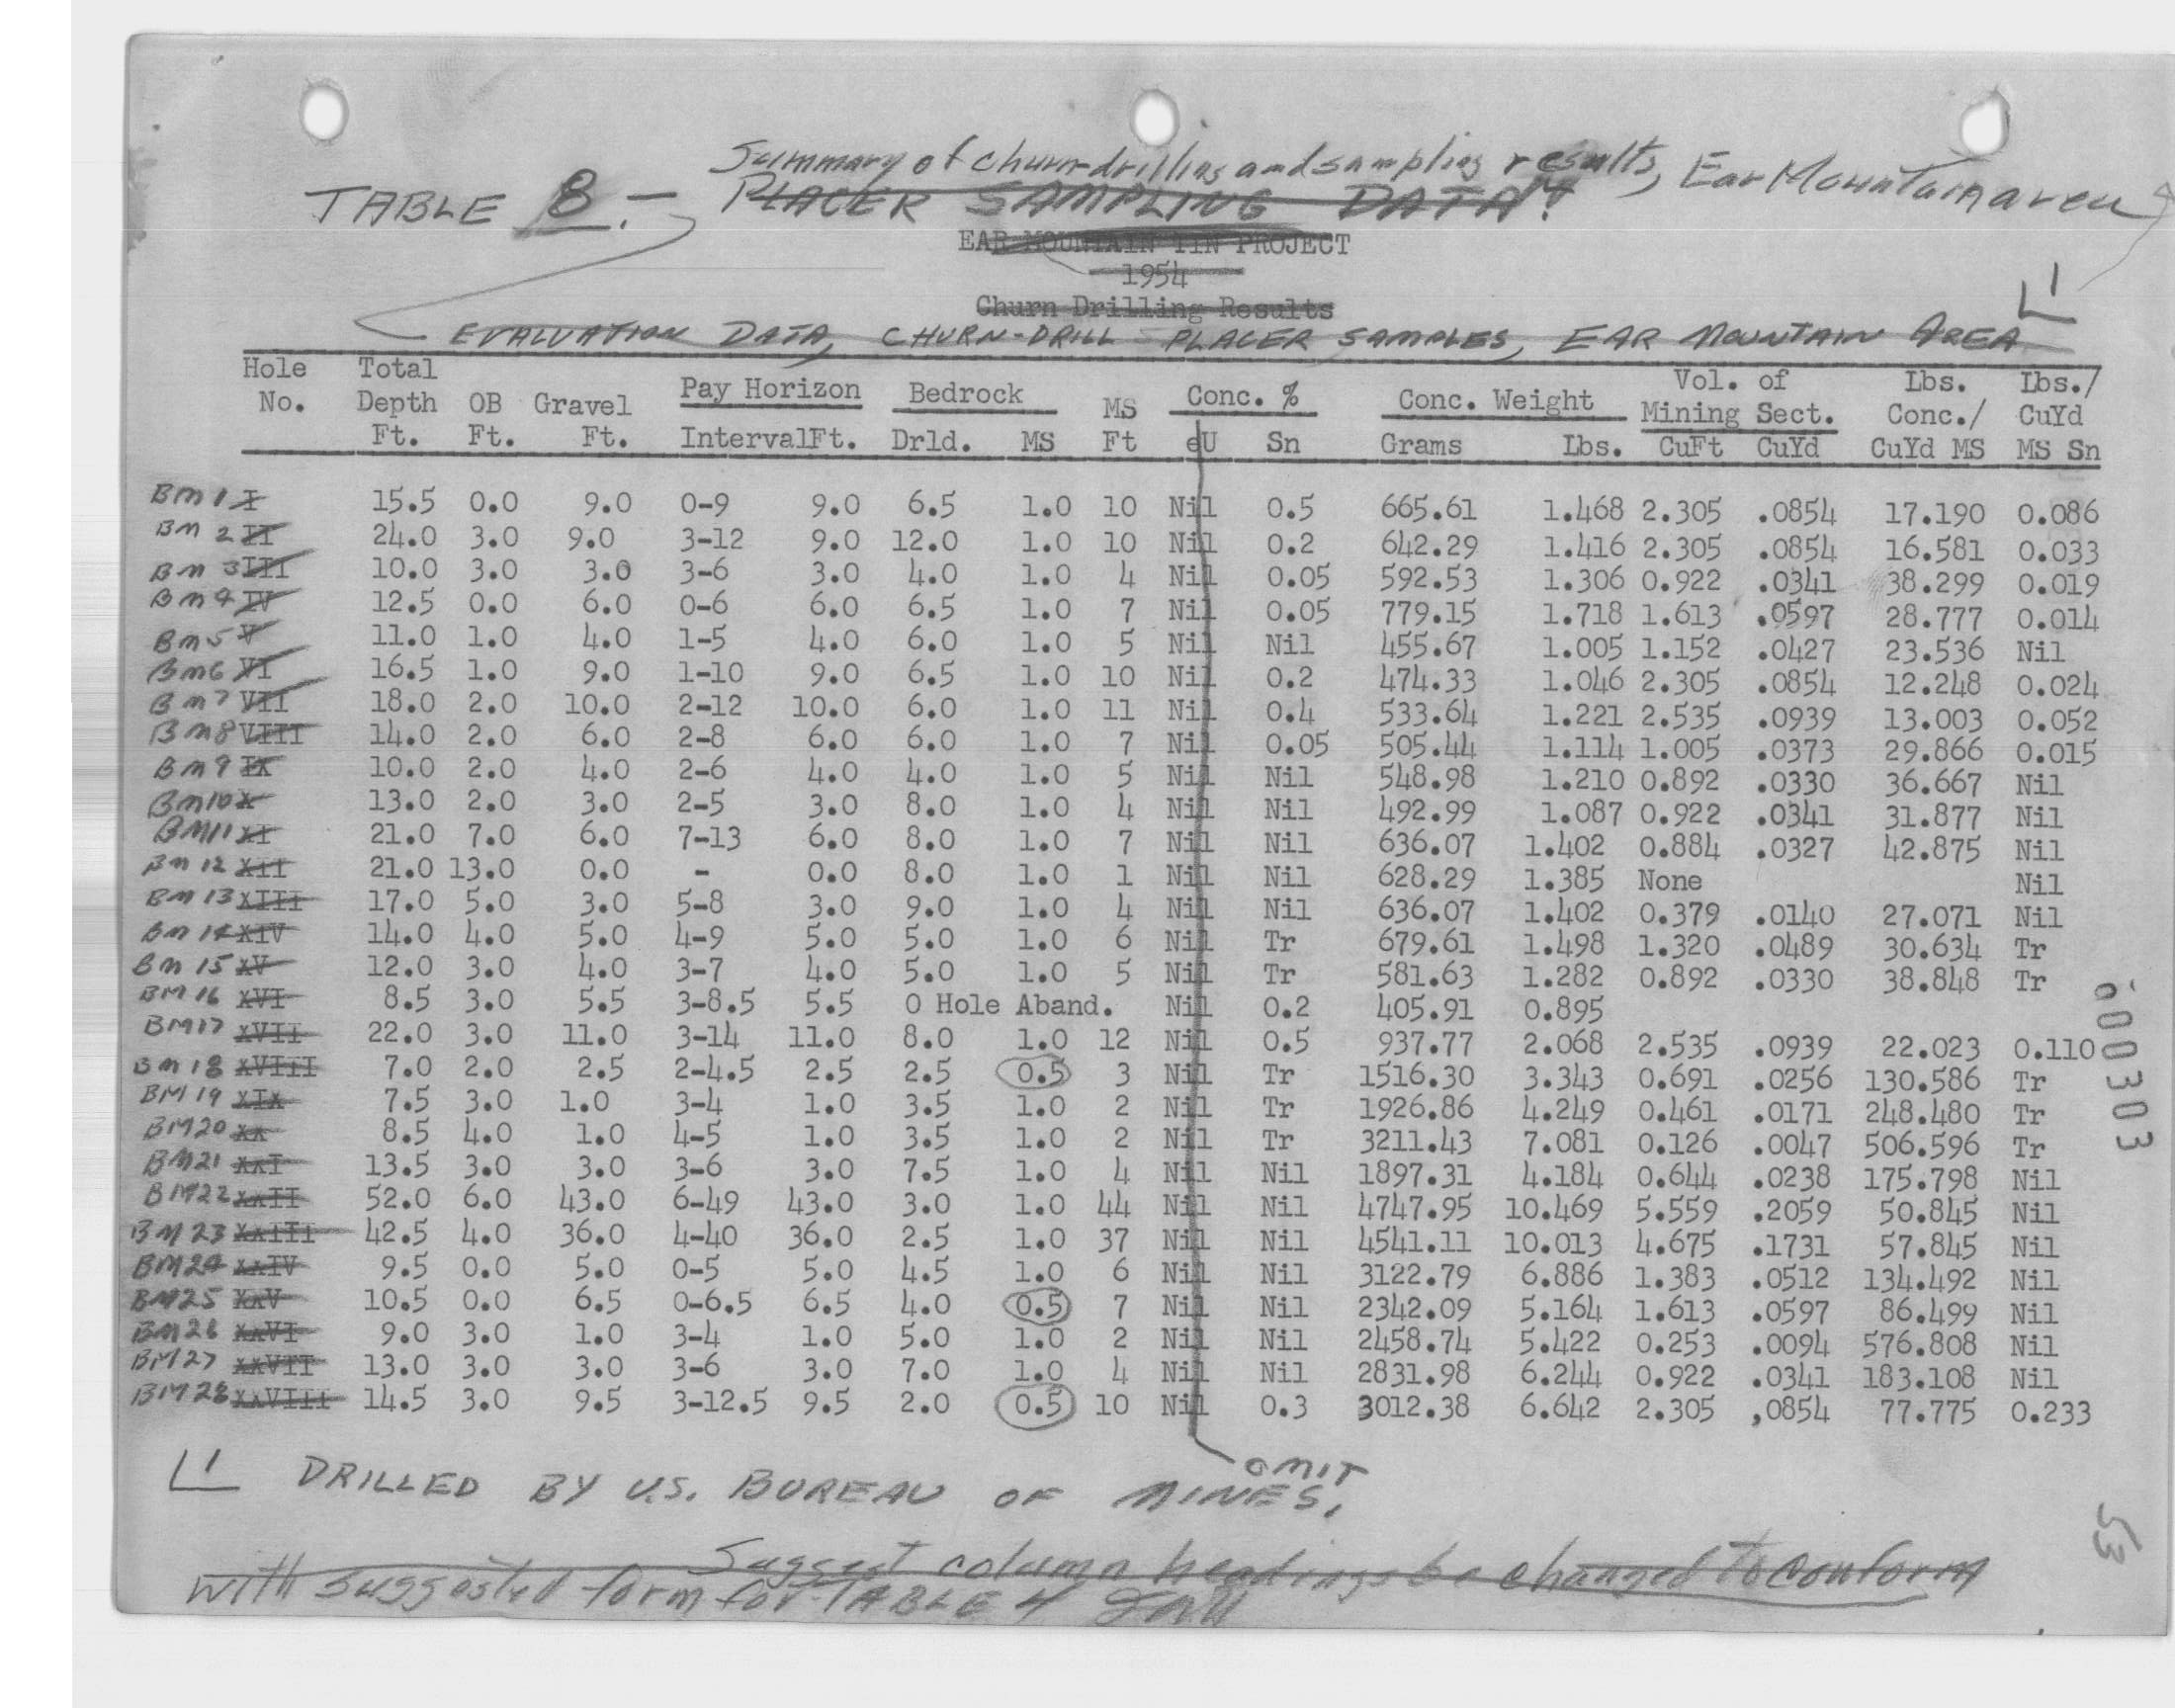 Summary of churn-drilling and sampling results, Ear Mountain area
TABLE 8.- PLACER SAMPLING DATA
EAR MOUNTAIN TIN PROJECT
1954
Churn Drilling Results
L1
EVALUATION DATA, CHURN-DRILL PLACER SAMPLES, EAR MOUNTAIN AREA
Hole Total Pay Horizon Bedrock Conc. % Conc. Weight Vol. of Lbs. Lbs./
No. Depth OB Gravel MS Mining Sect. Conc./ CuYd
Ft. Ft. Ft. Interval Ft. Drld. MS Ft eU Sn Grams Lbs. CuFt CuYd CuYd MS MS Sn
BM 1 I 15.5 0.0 9.0 0-9 9.0 6.5 1.0 10 Nil 0.5 665.61 1.468 2.305 .0854 17.190 0.086
BM 2 II 24.0 3.0 9.0 3-12 9.0 12.0 1.0 10 Nil 0.2 642.29 1.416 2.305 .0854 16.581 0.033
BM 3 III 10.0 3.0 3.0 3-6 3.0 4.0 1.0 4 Nil 0.05 592.53 1.306 0.922 .0341 38.299 0.019
BM 4 IV 12.5 0.0 6.0 0-6 6.0 6.5 1.0 7 Nil 0.05 779.15 1.718 1.613 .0597 28.777 0.014
BM 5 V 11.0 1.0 4.0 1-5 4.0 6.0 1.0 5 Nil Nil 455.67 1.005 1.152 .0427 23.536 Nil
BM6 VI 16.5 1.0 9.0 1-10 9.0 6.5 1.0 10 Nil 0.2 474.33 1.046 2.305 .0854 12.248 0.024
BM 7 VII 18.0 2.0 10.0 2-12 10.0 6.0 1.0 11 Nil 0.4 533.64 1.221 2.535 .0939 13.003 0.052
BM8 VIII 14.0 2.0 6.0 2-8 6.0 6.0 1.0 7 Nil 0.05 505.44 1.114 1.005 .0373 29.866 0.015
BM 9 IX 10.0 2.0 4.0 2-6 4.0 4.0 1.0 5 Nil Nil 548.98 1.210 0.892 .0330 36.667 Nil
BM10 X 13.0 2.0 3.0 2-5 3.0 8.0 1.0 4 Nil Nil 492.99 1.087 0.922 .0341 31.877 Nil
BM11 XI 21.0 7.0 6.0 7-13 6.0 8.0 1.0 7 Nil Nil 636.07 1.402 0.884 .0327 42.875 Nil
BM 12 XII 21.0 13.0 0.0 - 0.0 8.0 1.0 1 Nil Nil 628.29 1.385 None Nil
BM 13 XIII 17.0 5.0 3.0 5-8 3.0 9.0 1.0 4 Nil Nil 636.07 1.402 0.379 .0140 27.071 Nil
BM 14 XIV 14.0 4.0 5.0 4-9 5.0 5.0 1.0 6 Nil Tr 679.61 1.498 1.320 .0489 30.634 Tr
BM 15 XV 12.0 3.0 4.0 3-7 4.0 5.0 1.0 5 Nil Tr 581.63 1.282 0.892 .0330 38.848 Tr
BM 16 XVI 8.5 3.0 5.5 3-8.5 5.5 0 Hole Aband. Nil 0.2 405.91 0.895
BM17 XVII 22.0 3.0 11.0 3-14 11.0 8.0 1.0 12 Nil 0.5 937.77 2.068 2.535 .0939 22.023 0.110
BM 18 XVIII 7.0 2.0 2.5 2-4.5 2.5 2.5 0.5 3 Nil Tr 1516.30 3.343 0.691 .0256 130.586 Tr
BM 19 XIX 7.5 3.0 1.0 3-4 1.0 3.5 1.0 2 Nil Tr 1926.86 4.249 0.461 .0171 248.480 Tr
BM20 XX 8.5 4.0 1.0 4-5 1.0 3.5 1.0 2 Nil Tr 3211.43 7.081 0.126 .0047 506.596 Tr
BM21 XXI 13.5 3.0 3.0 3-6 3.0 7.5 1.0 4 Nil Nil 1897.31 4.184 0.644 .0238 175.798 Nil
BM22 XXII 52.0 6.0 43.0 6-49 43.0 3.0 1.0 44 Nil Nil 4747.95 10.469 5.559 .2059 50.845 Nil
BM 23 XXIII 42.5 4.0 36.0 4-40 36.0 2.5 1.0 37 Nil Nil 4541.11 10.013 4.675 .1731 57.845 Nil
BM24 XXIV 9.5 0.0 5.0 0-5 5.0 4.5 1.0 6 Nil Nil 3122.79 6.886 1.383 .0512 134.492 Nil
BM25 XXV 10.5 0.0 6.5 0-6.5 6.5 4.0 0.5 7 Nil Nil 2342.09 5.164 1.613 .0597 86.499 Nil
BM26 XXVI 9.0 3.0 1.0 3-4 1.0 5.0 1.0 2 Nil Nil 2458.74 5.422 0.253 .0094 576.808 Nil
BM27 XXVII 13.0 3.0 3.0 3-6 3.0 7.0 1.0 4 Nil Nil 2831.98 6.244 0.922 .0341 183.108 Nil
BM28 XXVIII 14.5 3.0 9.5 3-12.5 9.5 2.0 0.5 10 Nil 0.3 3012.38 6.642 2.305 ,0854 77.775 0.233
000303
OMIT
L1 DRILLED BY U.S. BUREAU OF MINES.
53
Suggest column headings be changed to conform
with suggested form for TABLE 4